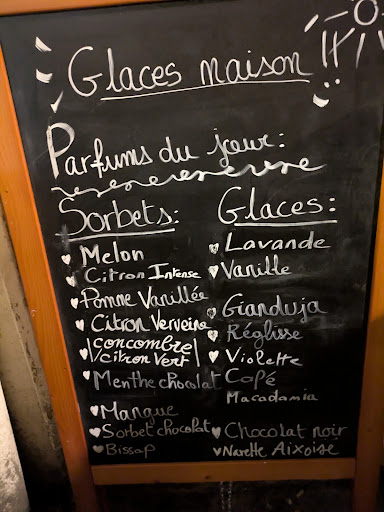 Glaces maison !!
Parfums du jour :
Sorbets :
Melon
Citron Intense
Pomme Vanillée
Citron Verveine
Concombre/
Citron Vert
Menthe chocolat
Mangue
Sorbet chocolat
Bissap
Glaces :
Lavande
Vanille
Gianduja
Réglisse
Violette
Café
Macadamia
Chocolat noir
Navette Aixoise